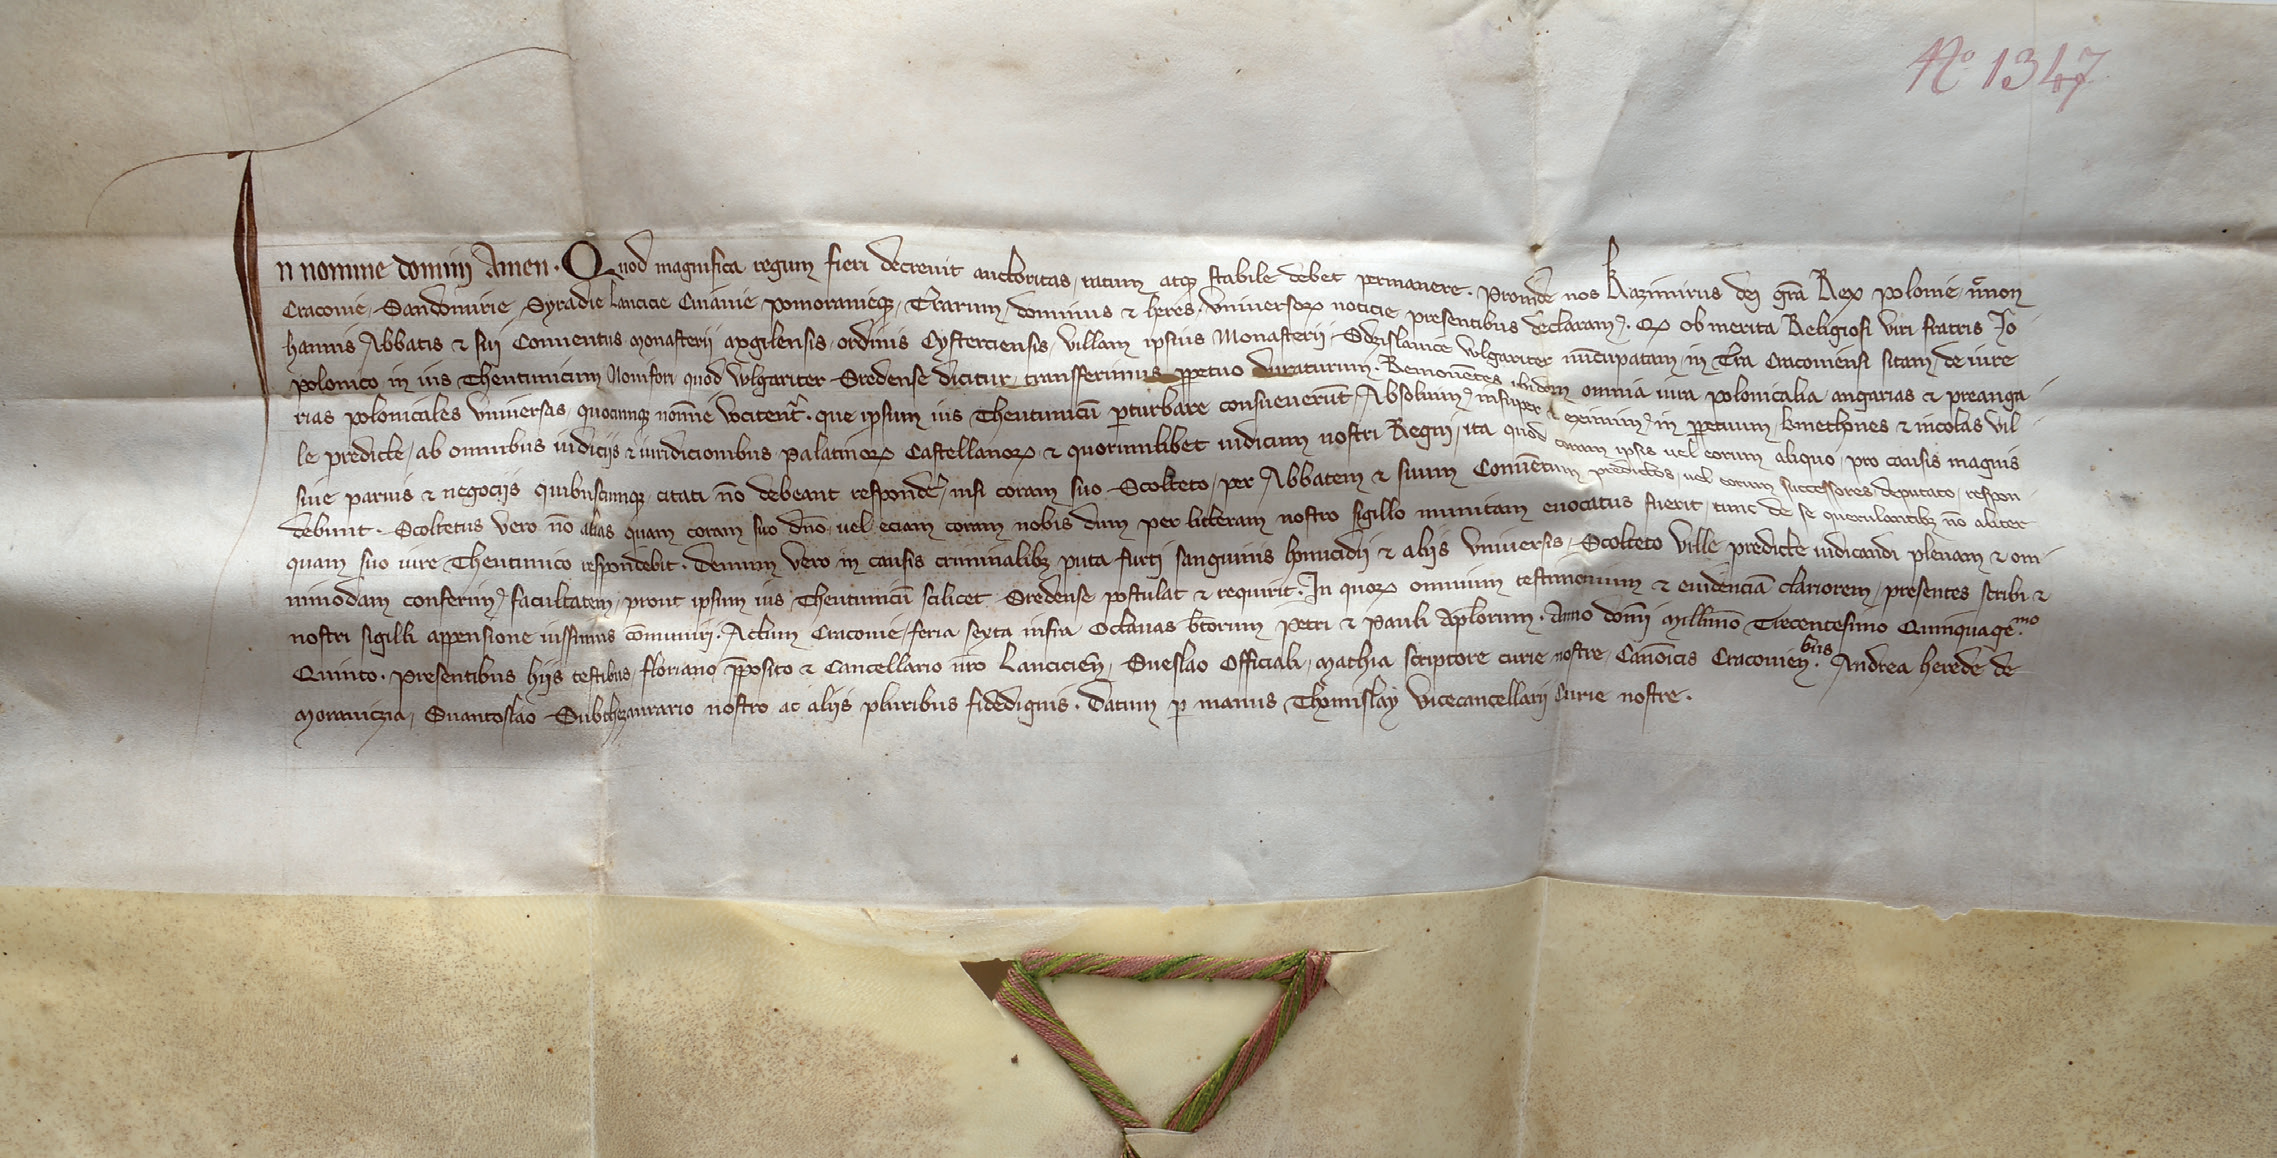 No 1347
In nomine domini Amen. Quod magnifica regum fieri decrevit auctoritas, ratum atq; stabile debet permanere. Proinde nos Kazimirus dei gra Rex polonie, necnon
Cracovie, Sandomirie, Syradie Lancicie Cuiavie pomoranieq;, Trarum, dominus et heres. Universorum noticie presentibus declaram9. Quod ob merita Religiosi viri fratris Jo
hannis Abbatis et sui Conventus monasterii ordinis Cysterciensis, villam ipsius Monasterii Sdzislavice vlgariter nuncupatam, in Tra Cracoviensi sitam, de iure
polonico in ius Theutunicum Novifori quod vlgariter Sredense dicitur, transferimus ppetuo duraturum. Removentes ibidem omnia iura polonicalia angarias et preanga
rias polonicales vniversas, quocunq; nomine vocitentr. que ipsum ius Theutunicu pturbare consueverunt, Absolvim9 insuper et eximim9 in ppetuum, kmethones et incolas vil
le predicte, ab omnibus iudiciis et iuridicionibus Palatinorum Castellanorum et quorumlibet iudicum nostri Regni, ita quod coram ipsis vel eorum aliquo, pro causis magnis
sive parvis et negociis quibuscunque, citati no debeant responder, nisi coram suo Scolteto, per Abbatem et suum Conventum predictos, vel eorum successores, deputato, respon
debunt. Scoltetus vero no alias quam coram suo dno, vel eciam coram nobis dum per litteram nostro sigillo munitam evocatus fuerit, tunc de se querulantib; no aliter
quam suo iure Theutunico respondebit. Demum vero in causis criminalib; puta furti sanguinis homicidii et aliis vniversis, Scolteto ville predicte iudicandi plenam et om
nimodam conferim9 facultatem, prout ipsum ius Theutunicu scilicet Sredense postulat et requirit. In quorum omnium testimonium et evidencia clariorem, presentes scribi et
nostri sigilli appensione iussimus comuniri. Actum Cracovie, feria sexta infra Octavas btorum Petri et Pauli Aplorum. Anno domi Millimo Trecentesimo Quinquage.mo
Quinto. Presentibus hiis testibus, floriano pposito et Cancellario nro Lancicien, Sueslao Officiali, Mathia scriptore curie nostre, Canoicis Cracovienbus. Andrea herede de
moraviczia, Suantoslao Subthezaurario nostro ac aliis pluribus fidedignis. Datum p manus Thomislay vicecancellarii Curie nostre.